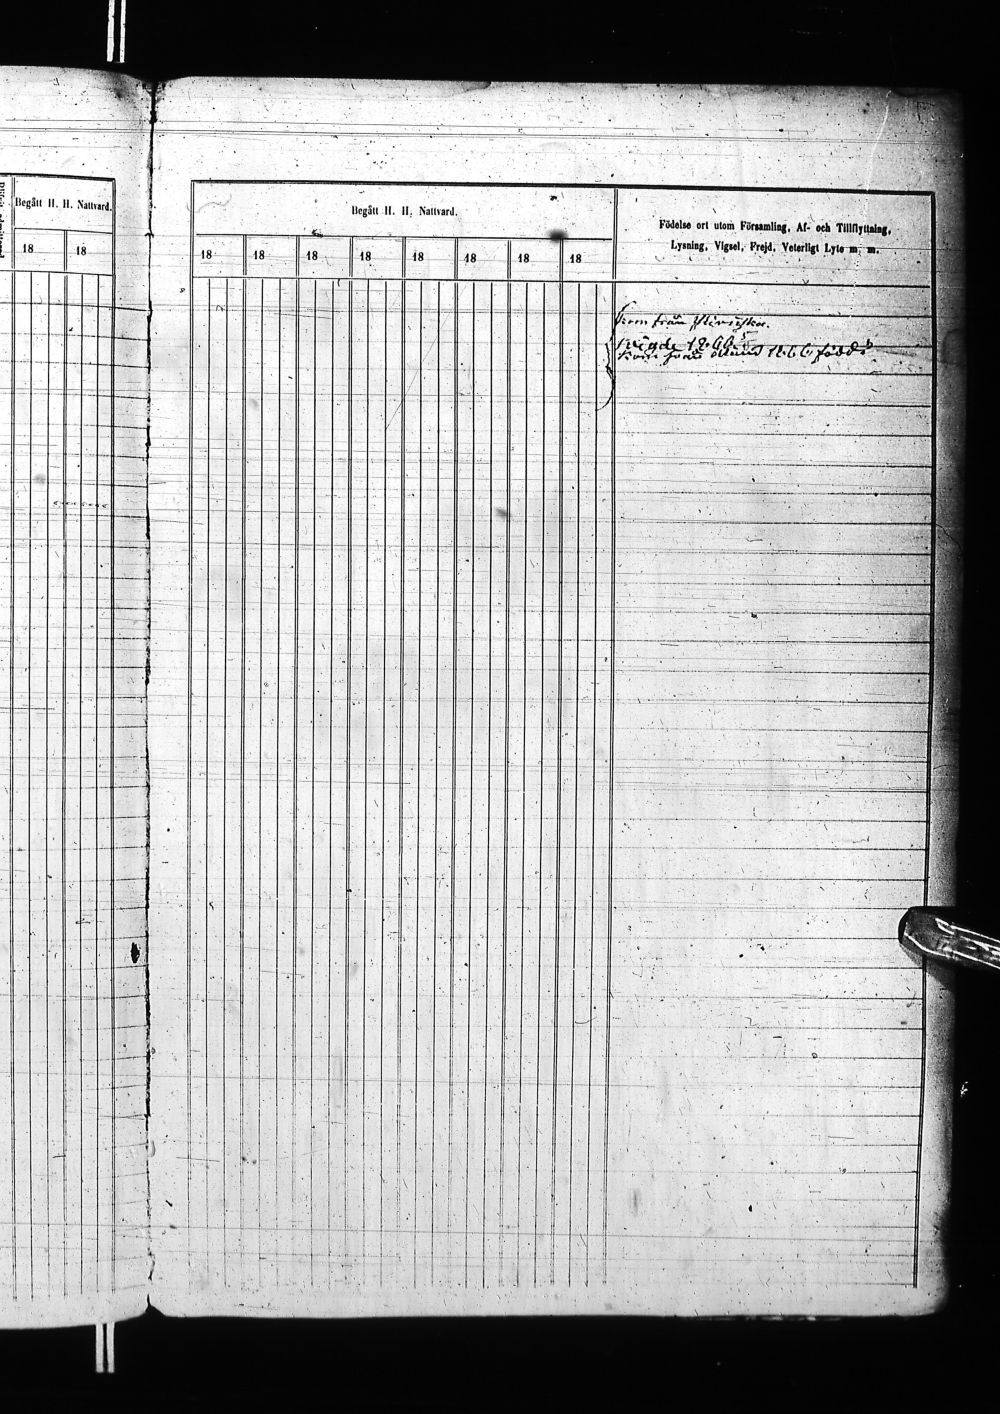 Begått H. H. Nattvard.
18 18
Begått H. H. Nattvard.
18 18 18 18 18 18 18 18
Födelse ort utom Församling, Af- och Tillflyttning,
Lysning, Vigsel, Frejd, Veterligt Lyte m. m.
kom från
vigde 1866
kom från 1866 född